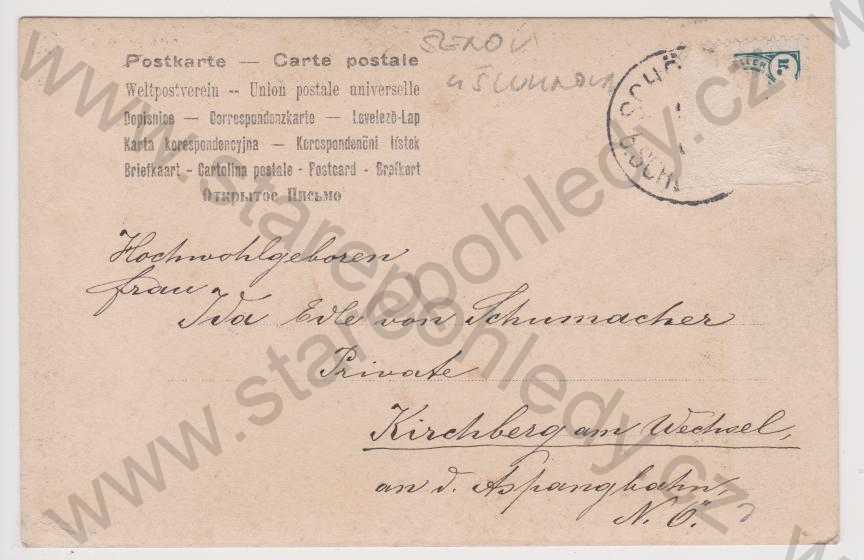 Postkarte — Carte postale
Weltpostverein -- Union postale universelle
Dopisnice — Correspondenzkarte — Levelező-Lap
Karta korespondencyjna — Korespondenční lístek
Briefkaart - Cartolina postale - Postcard - Brefkort
Открытое Письмо
SZENOV
U ŠLUKNOVA
Hochwohlgeboren
Frau
Ida Edle von Schumacher
Private
Kirchberg am Wechsel,
an d. Aspangbahn,
N. Ö.
www.stareopohledy.cz